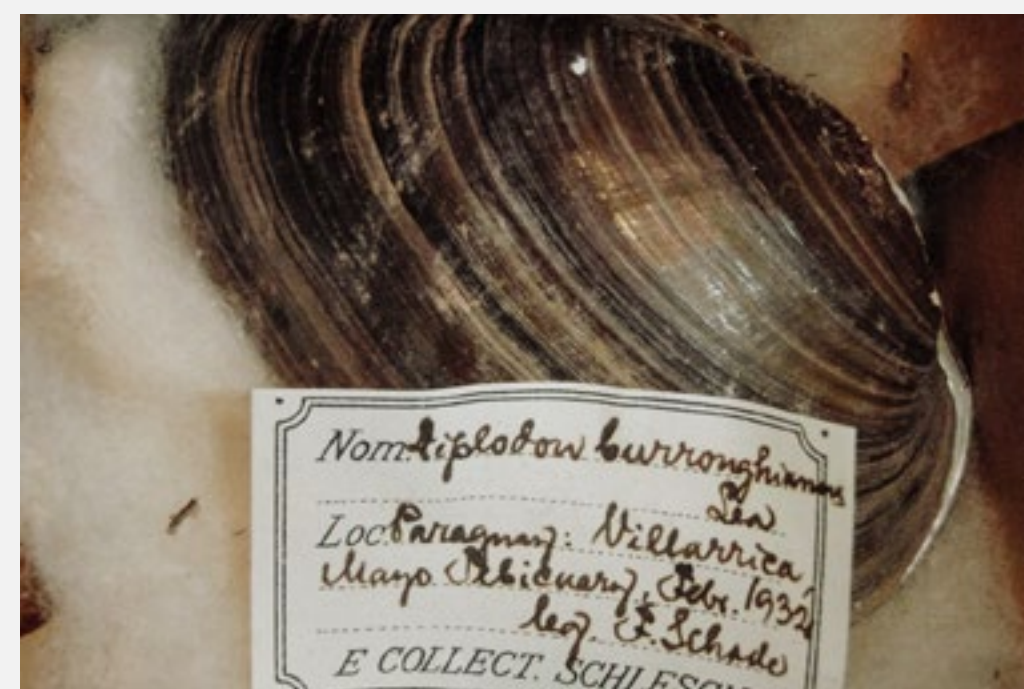 Nom. Diplodon burroughianus
Lea
Loc. Paraguay: Villarrica,
Mayo Tebicuary, Febr. 1932
leg. F. Schade
E COLLECT. SCHLESCH